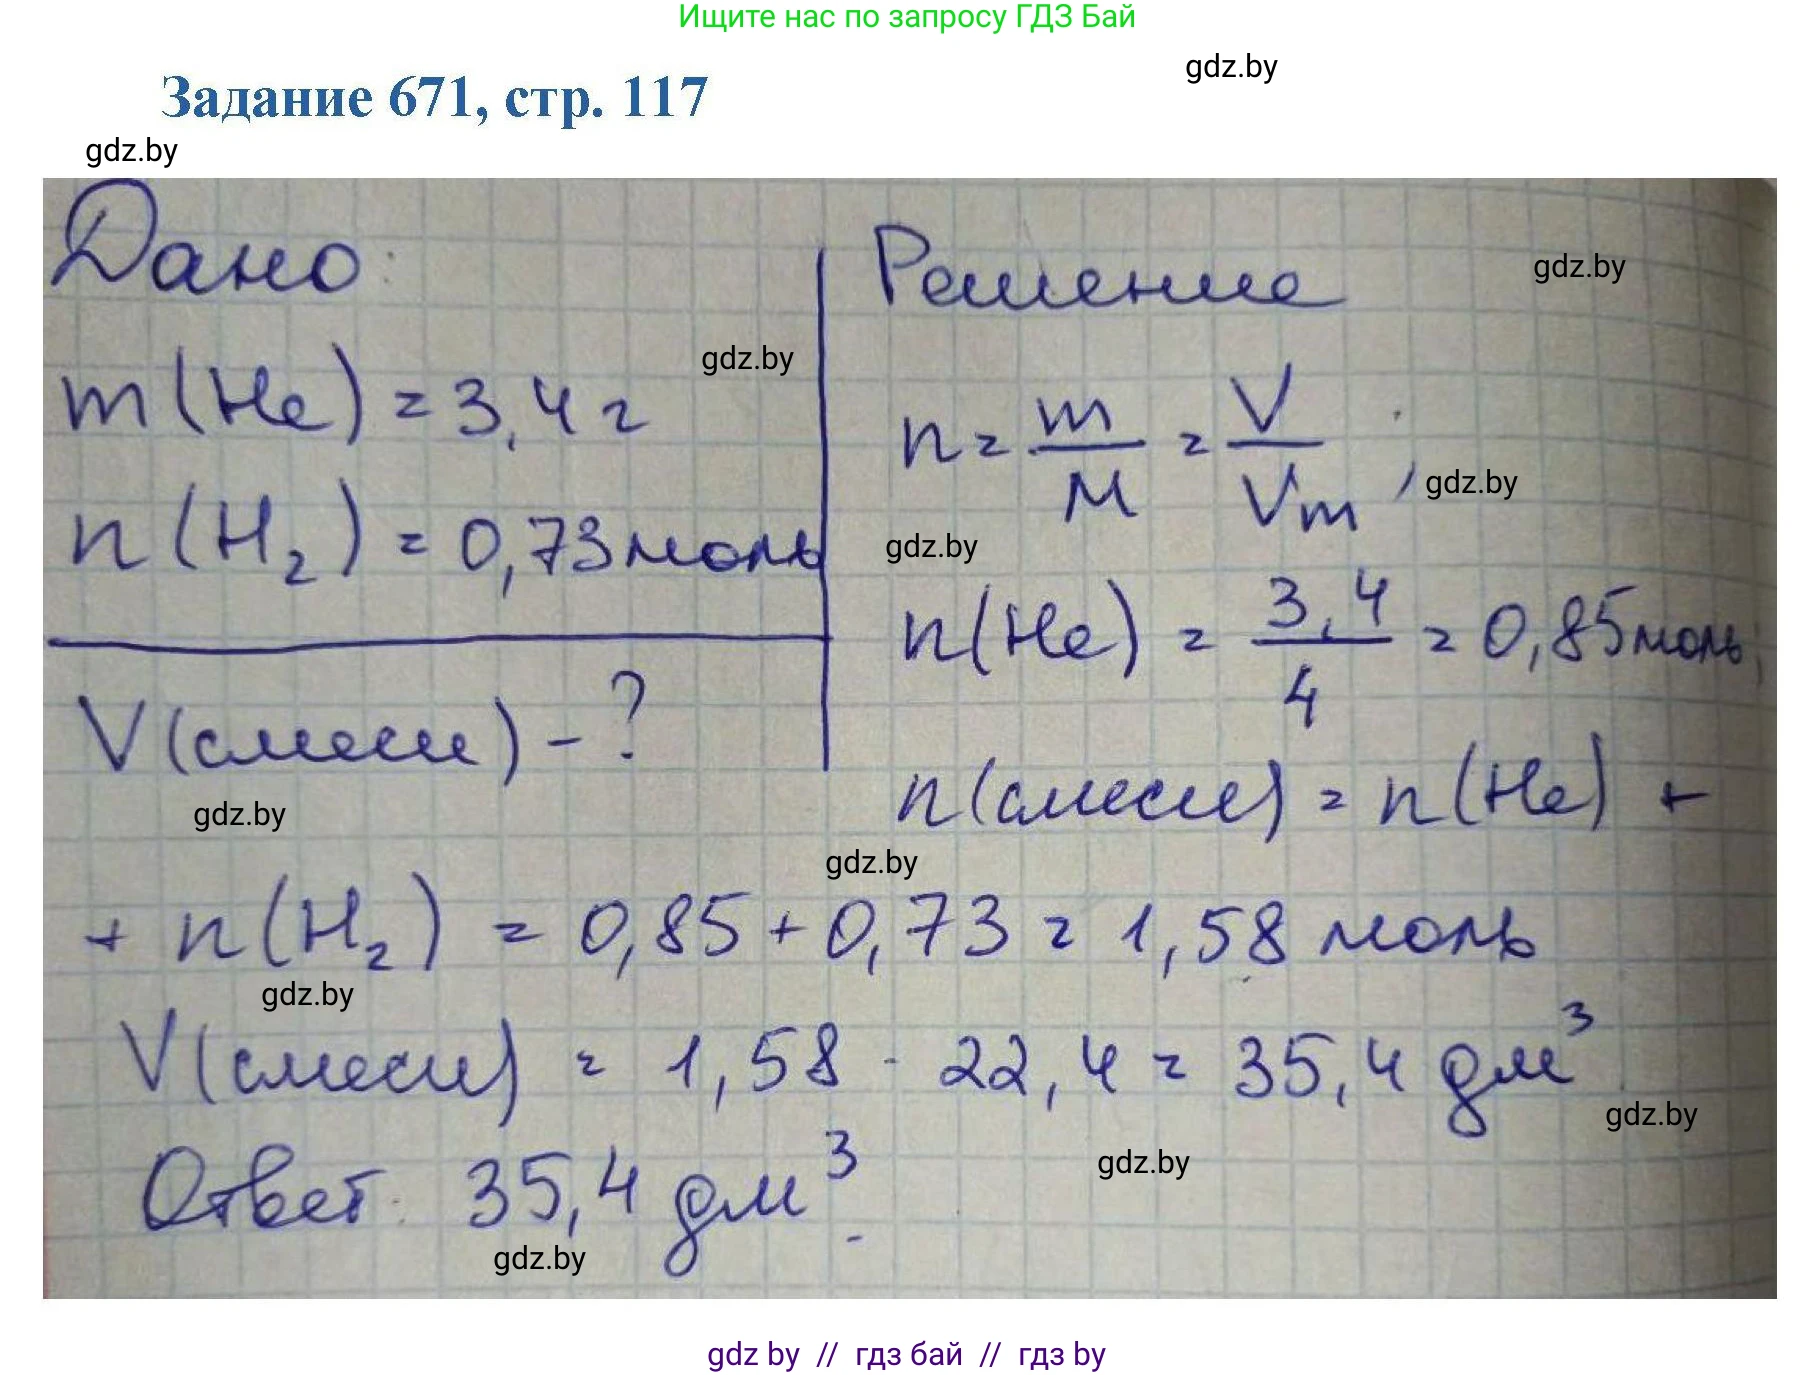 Ищите нас по запросу ГДЗ Бай
gdz.by
Задание 671, стр. 117
gdz.by
Дано:
m(He) = 3,4 г
gdz.by
n(H₂) = 0,73 моль
V(смеси) - ?
gdz.by
Решение
gdz.by
n = m/M = V/Vm ,
gdz.by
gdz.by
n(He) = 3,4/4 = 0,85 моль;
n(смеси) = n(He) +
gdz.by
+ n(H₂) = 0,85 + 0,73 = 1,58 моль
gdz.by
V(смеси) = 1,58 · 22,4 = 35,4 дм³
gdz.by
Ответ: 35,4 дм³.
gdz.by
gdz.by
gdz by // гдз бай // гдз by